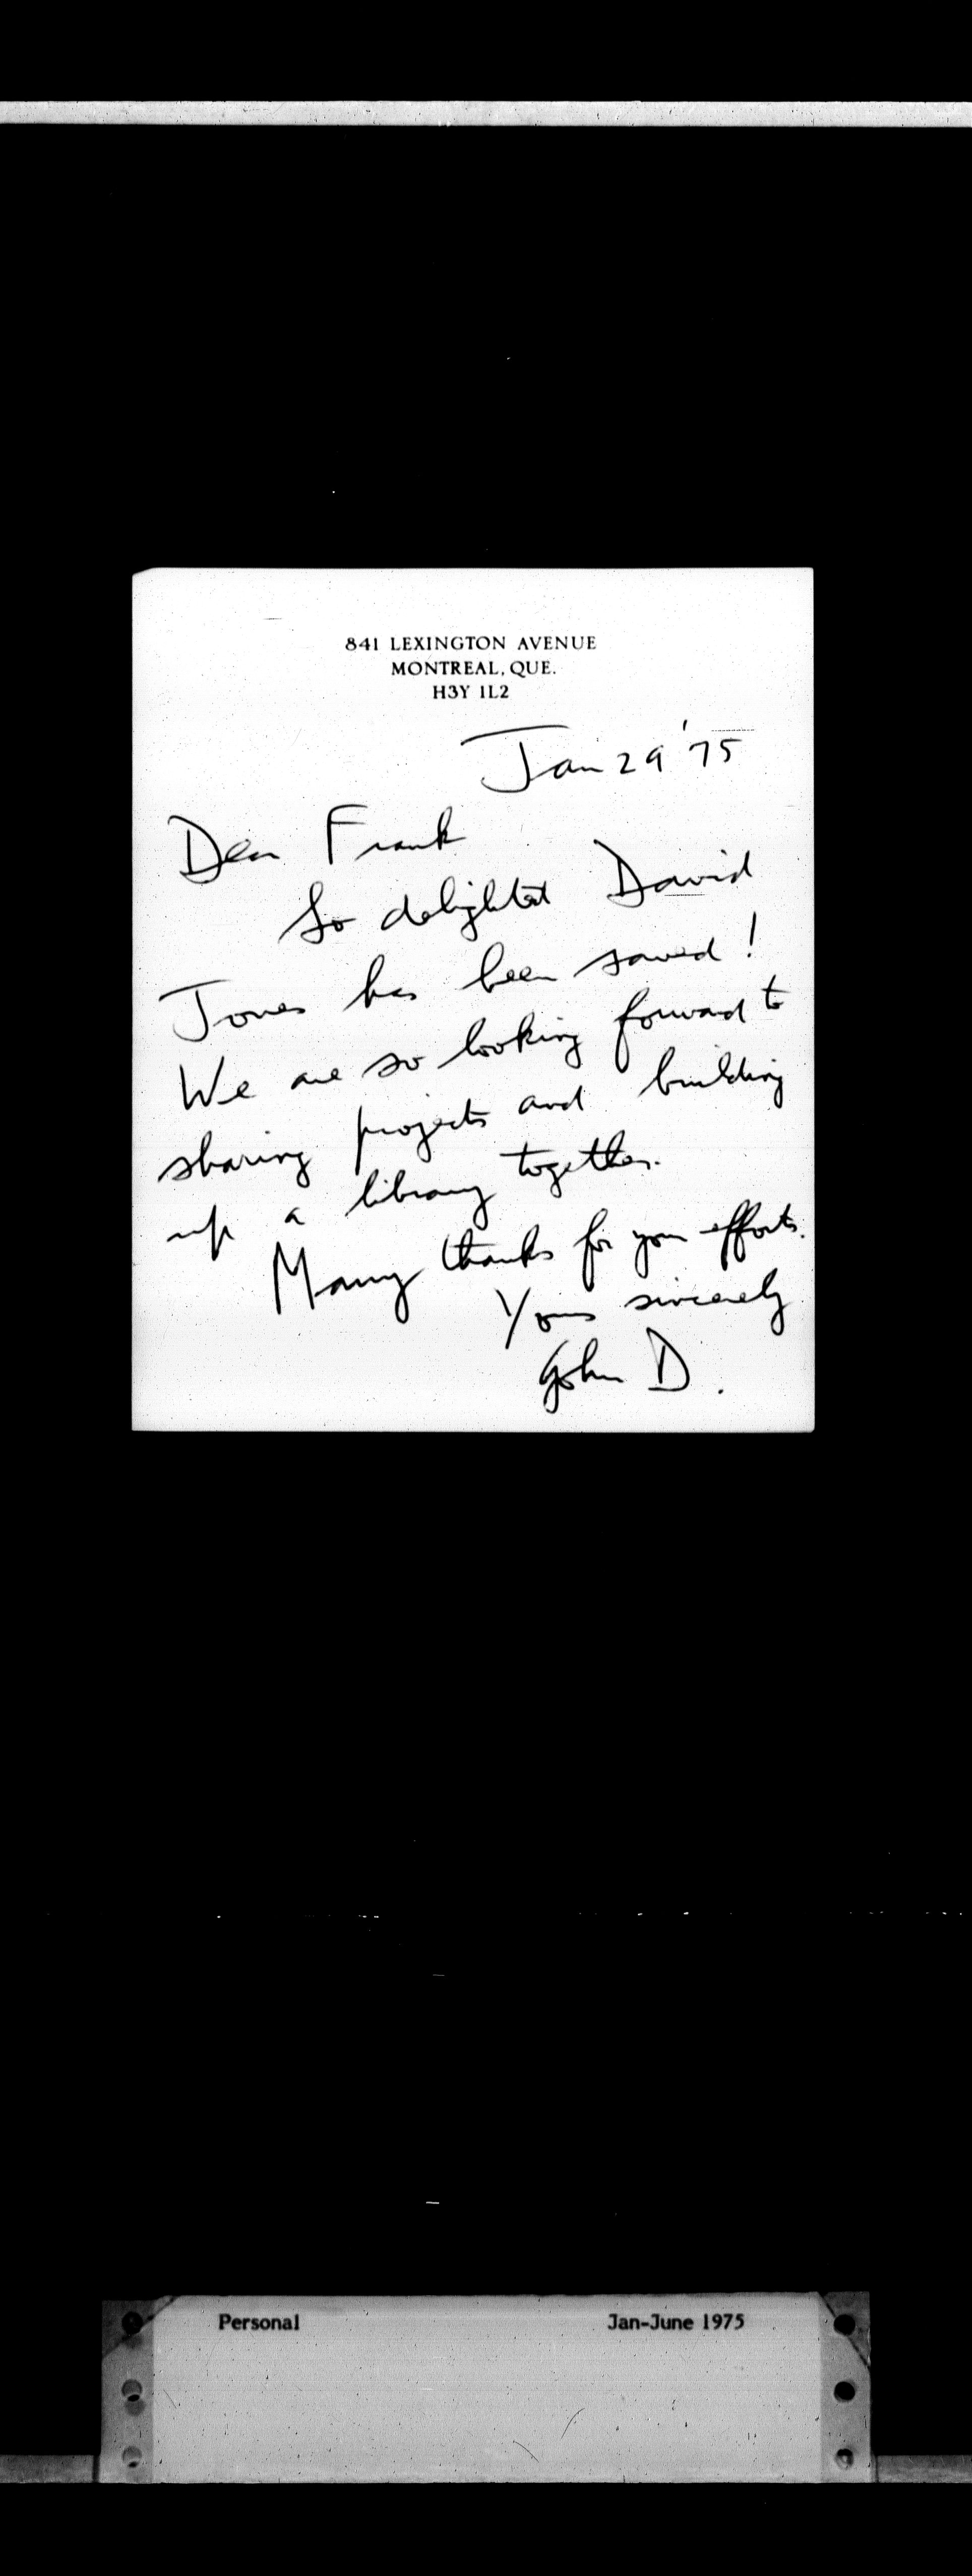 841 LEXINGTON AVENUE
MONTREAL, QUE.
H3Y 1L2
Jan 29 '75
Dear Frank
So delighted David
Jones has been saved!
We are so looking forward to
sharing projects and building
up a library together.
Many thanks for your efforts.
Yours sincerely
John D.
Personal Jan-June 1975